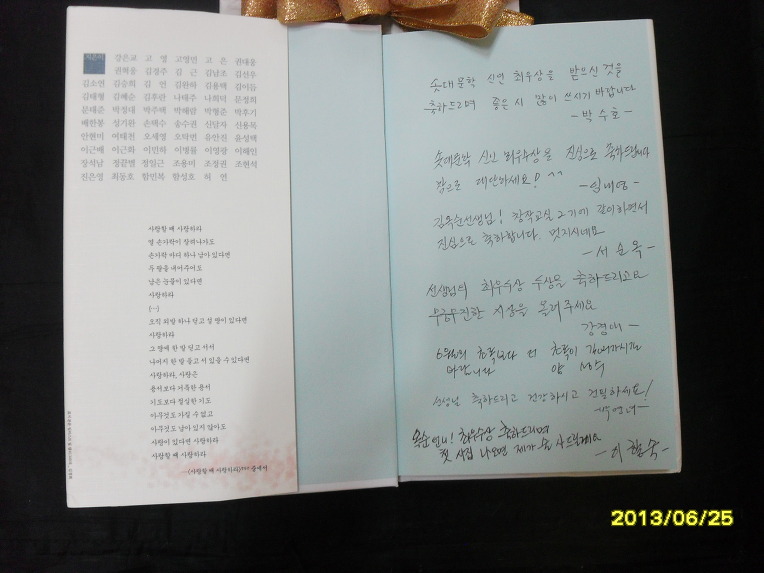 강은교 고 영 고영민 고 은 권대웅
권혁웅 김경주 김 근 김남조 김선우
김소연 김승희 김 언 김완하 김용택 김이듬
김태형 김혜순 김후란 나태주 나희덕 문정희
문태준 박정대 박주택 박해람 박형준 박후기
배한봉 성기완 손택수 송수권 신달자 신용목
안현미 여태천 오세영 오탁번 유안진 윤성택
이근배 이근화 이민하 이병률 이영광 이해인
장석남 정끝별 정일근 조용미 조정권 조현석
진은영 최동호 함민복 함성호 허 연
사랑할 때 사랑하라
열 손가락이 잘려나가도
손가락 마디 하나 남아 있다면
두 팔을 내어주어도
남은 눈물이 있다면
사랑하라
(…)
오직 외발 하나 딛고 설 땅이 있다면
사랑하라
그 땅에 한 발 딛고 서서
나머지 한 발 들고 서 있을 수 있다면
사랑하라, 사랑은
용서보다 거룩한 용서
기도보다 절실한 기도
아무것도 가질 수 없고
아무것도 남아 있지 않아도
사랑이 있다면 사랑하라
사랑할 때 사랑하라
―〈사랑할 때 사랑하라〉 중에서
솟대문학 신인 최우수상을 받으신 것을
축하드리며 좋은 시 많이 쓰시기 바랍니다
-박수호-
솟대문학 신인 최우수상을 진심으로 축하드립니다
참으로 대단하세요! ^^
김옥순선생님! 창작교실 2기에 같이하면서
진심으로 축하합니다. 멋지시네요
-서순옥-
선생님의 최우수상 수상을 축하드리고요
무궁무진한 시상을 올려주세요
강경애-
6월의 초록보다 더 초록이
바랍니다
선생님 축하드리고 건강하시고 건필하세요!
옥순언니! 최우수상 축하드리며
첫 시집 나오면 제가 술 사드릴게요
2013/06/25